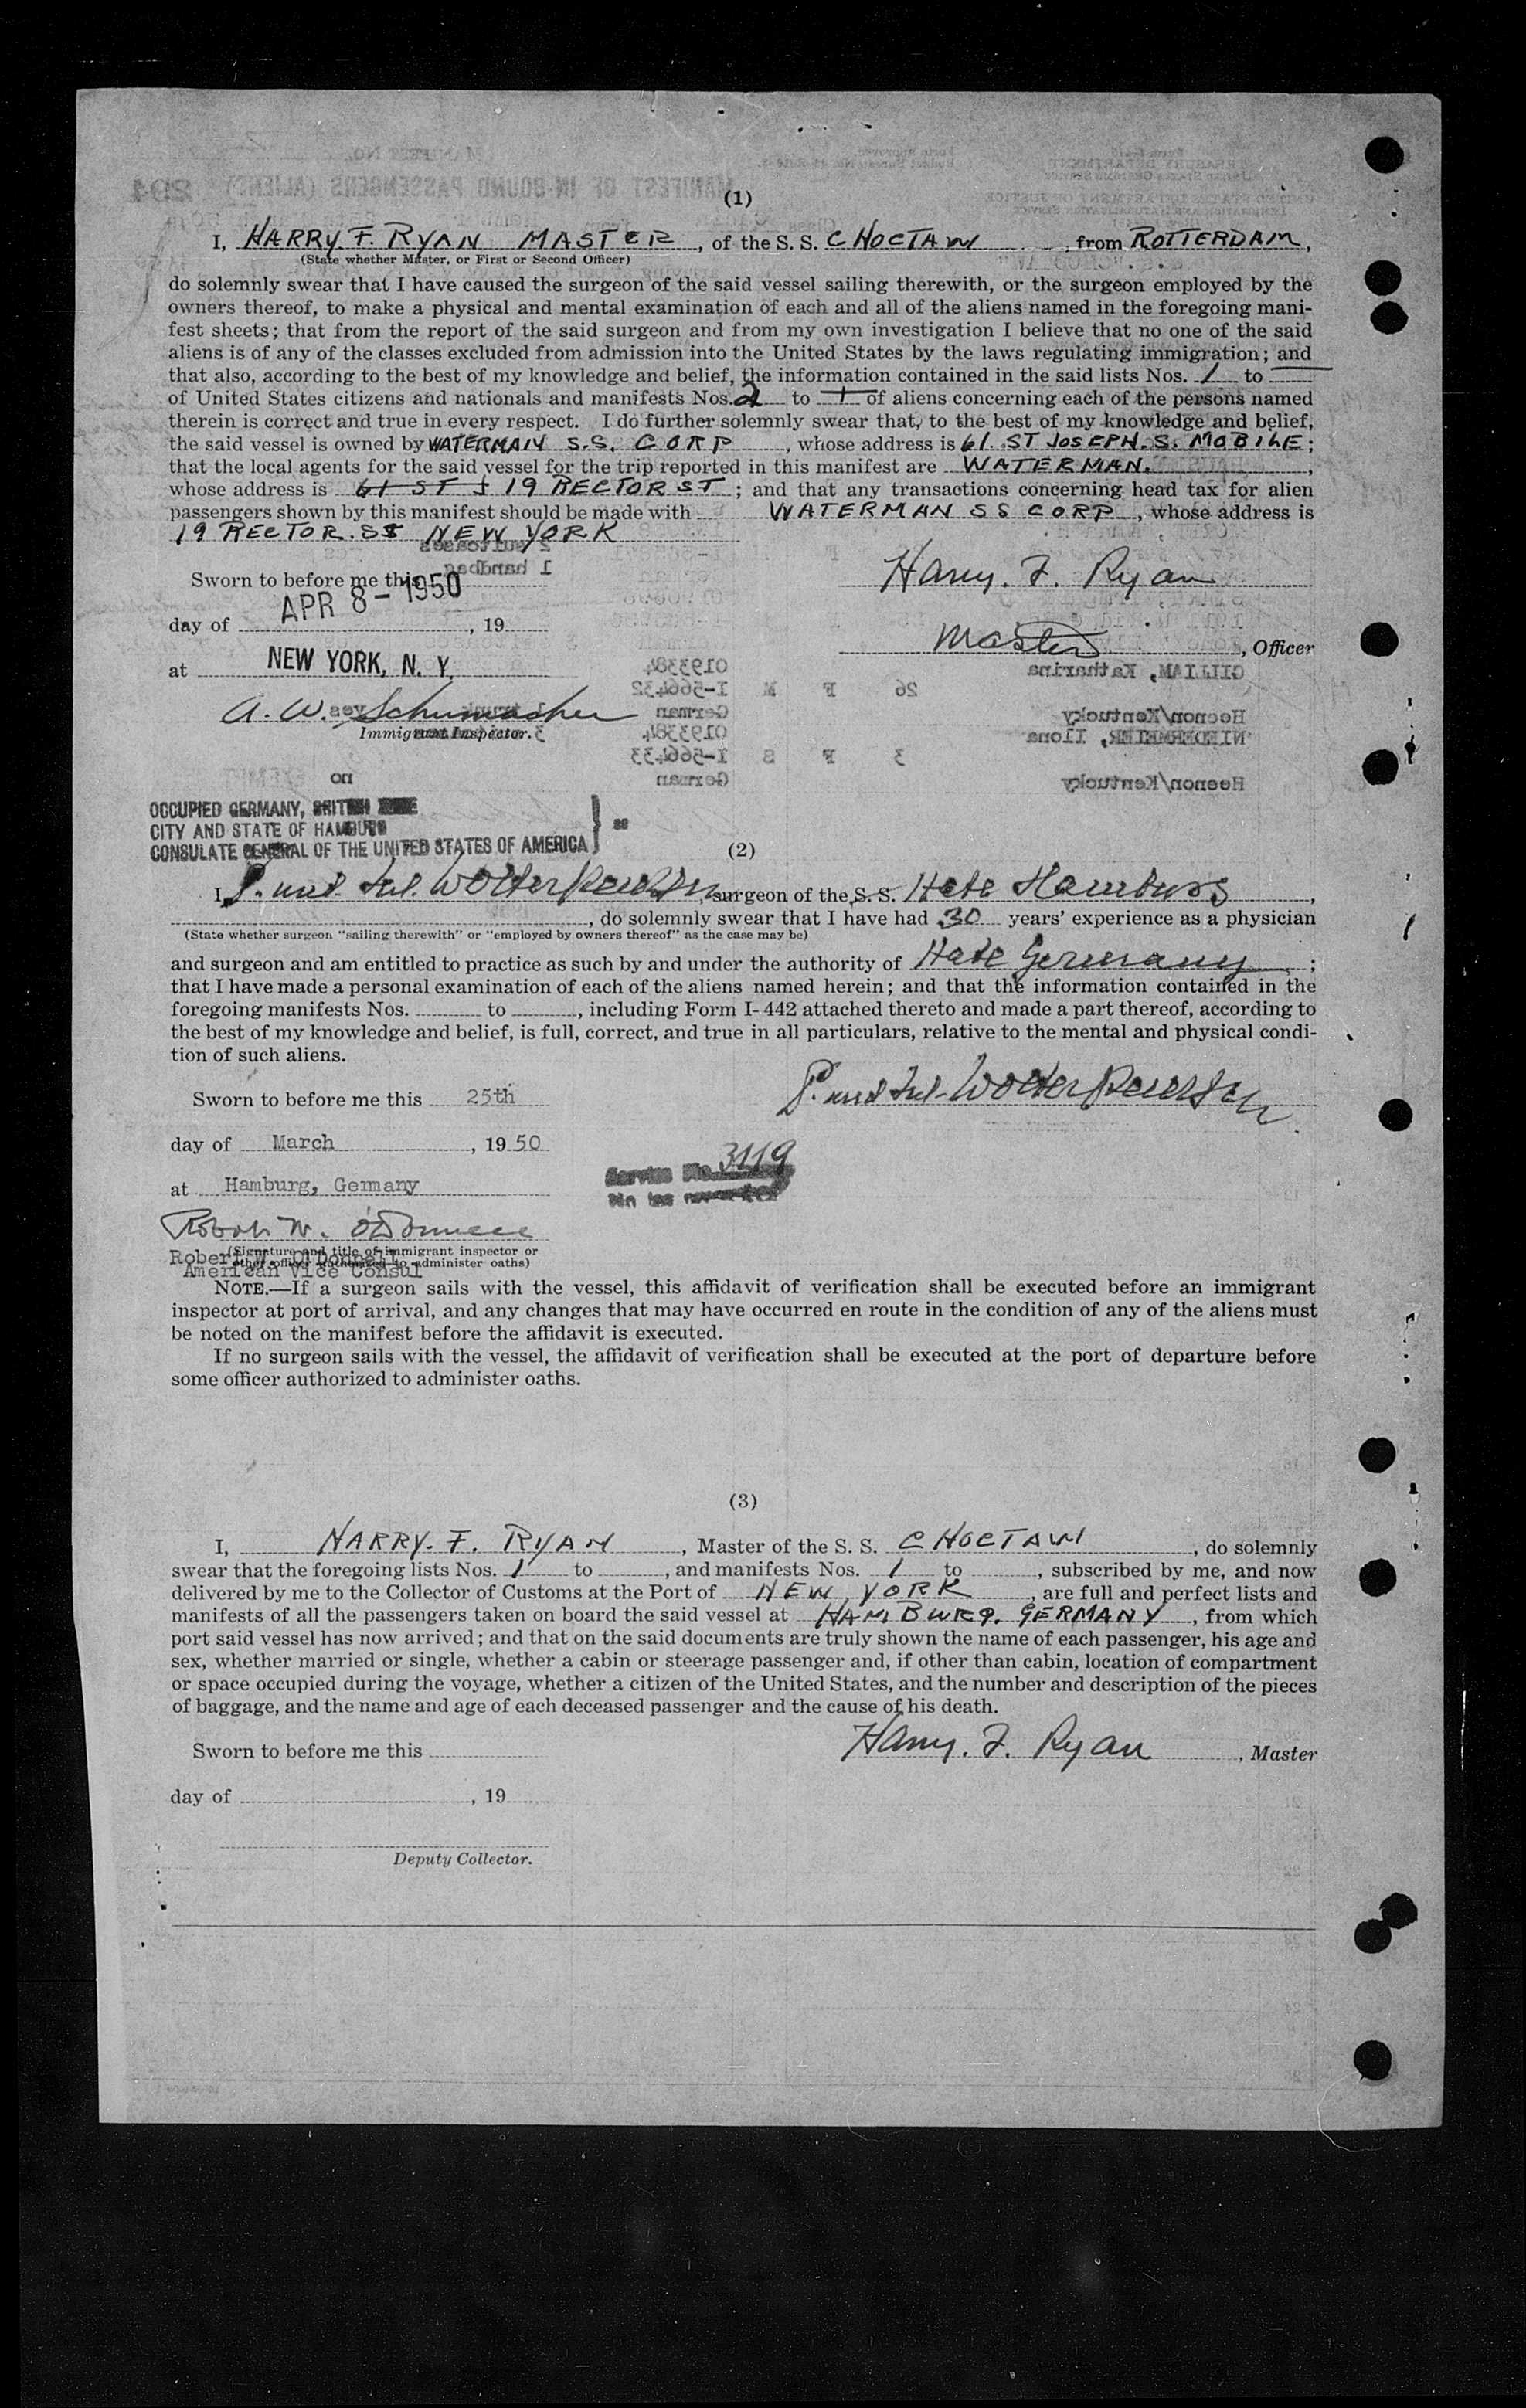 (1)
I, HARRY. F. RYAN MASTER, of the S. S. CHOCTAW, from ROTTERDAM,
(State whether Master, or First or Second Officer)
do solemnly swear that I have caused the surgeon of the said vessel sailing therewith, or the surgeon employed by the
owners thereof, to make a physical and mental examination of each and all of the aliens named in the foregoing mani-
fest sheets; that from the report of the said surgeon and from my own investigation I believe that no one of the said
aliens is of any of the classes excluded from admission into the United States by the laws regulating immigration; and
that also, according to the best of my knowledge and belief, the information contained in the said lists Nos. 1 to
of United States citizens and nationals and manifests Nos. 2 to 1 of aliens concerning each of the persons named
therein is correct and true in every respect. I do further solemnly swear that, to the best of my knowledge and belief,
the said vessel is owned by WATERMAN S.S. CORP, whose address is 61. ST JOSEPH. S. MOBILE;
that the local agents for the said vessel for the trip reported in this manifest are WATERMAN.,
whose address is 61 ST J 19 RECTOR ST; and that any transactions concerning head tax for alien
passengers shown by this manifest should be made with WATERMAN SS CORP, whose address is
19 RECTOR. ST NEW YORK
2 suitcases
1 handbag
Sworn to before me this
APR 8 - 1950
Harry. F. Ryan
day of , 19
Master, Officer
at NEW YORK, N. Y.
0193384
GILLIAM, Katharina
26 F M I-566432
A. W. Schumacher
yes
German
Hecnon/Kentucky
Immigrant Inspector.
0193384
NIEDERMEIER, Ilona
3 F S I-566433
no
German
Heenon/Kentucky
OCCUPIED GERMANY, BRITISH ZONE
CITY AND STATE OF HAMBURG
CONSULATE GENERAL OF THE UNITED STATES OF AMERICA } ss
(2)
I, surgeon of the S. S. Hamburg,
, do solemnly swear that I have had 30 years' experience as a physician
(State whether surgeon "sailing therewith" or "employed by owners thereof" as the case may be)
and surgeon and am entitled to practice as such by and under the authority of Germany;
that I have made a personal examination of each of the aliens named herein; and that the information contained in the
foregoing manifests Nos. to , including Form I-442 attached thereto and made a part thereof, according to
the best of my knowledge and belief, is full, correct, and true in all particulars, relative to the mental and physical condi-
tion of such aliens.
Sworn to before me this 25th
day of March, 1950
Service No. 3119
at Hamburg, Germany
Robert W. O'Donnell
(Signature and title of immigrant inspector or
Robert W. O'Donnell
other officer authorized to administer oaths)
American Vice Consul
NOTE.—If a surgeon sails with the vessel, this affidavit of verification shall be executed before an immigrant
inspector at port of arrival, and any changes that may have occurred en route in the condition of any of the aliens must
be noted on the manifest before the affidavit is executed.
If no surgeon sails with the vessel, the affidavit of verification shall be executed at the port of departure before
some officer authorized to administer oaths.
(3)
I, HARRY. F. RYAN, Master of the S. S. CHOCTAW, do solemnly
swear that the foregoing lists Nos. 1 to , and manifests Nos. 1 to , subscribed by me, and now
delivered by me to the Collector of Customs at the Port of NEW YORK, are full and perfect lists and
manifests of all the passengers taken on board the said vessel at HAMBURG. GERMANY, from which
port said vessel has now arrived; and that on the said documents are truly shown the name of each passenger, his age and
sex, whether married or single, whether a cabin or steerage passenger and, if other than cabin, location of compartment
or space occupied during the voyage, whether a citizen of the United States, and the number and description of the pieces
of baggage, and the name and age of each deceased passenger and the cause of his death.
Sworn to before me this
Harry. F. Ryan, Master
day of , 19
Deputy Collector.